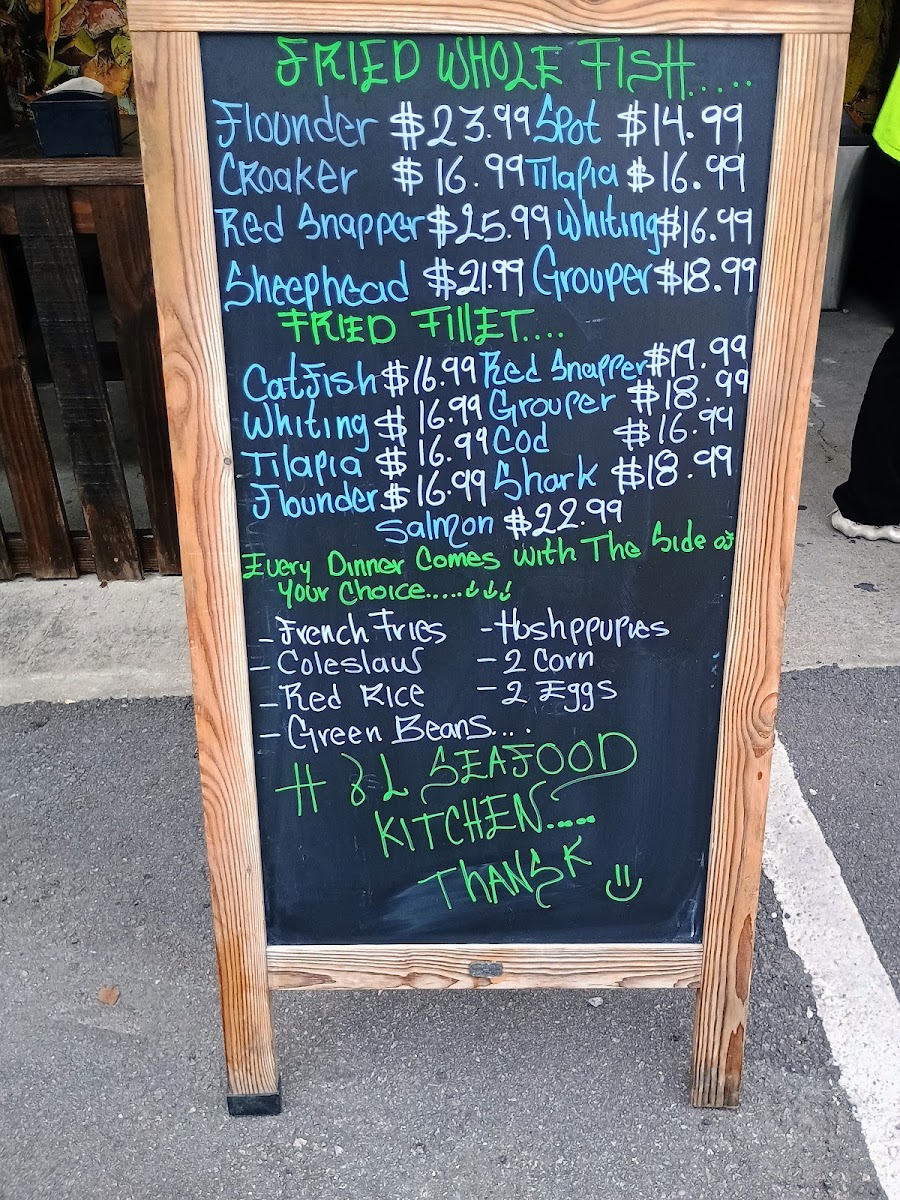 FRIED WHOLE FISH.....
Flounder $23.99 Spot $14.99
CROAKER $16.99 Tilapia $16.99
Red Snapper $25.99 Whiting $16.99
Sheephead $21.99 Grouper $18.99
FRIED FIllET....
Catfish $16.99 Red Snapper $19.99
Whiting $16.99 Grouper $18.99
Tilapia $16.99 Cod $16.99
Flounder $16.99 Shark $18.99
Salmon $22.99
Every Dinner Comes with The Side of
Your Choice.....↓↓↓
- French Fries - Hoshppupies
- Coleslaw - 2 Corn
- Red Rice - 2 Eggs
- Green Beans....
H & L SEAFOOD
KITCHEN.....
THANSK